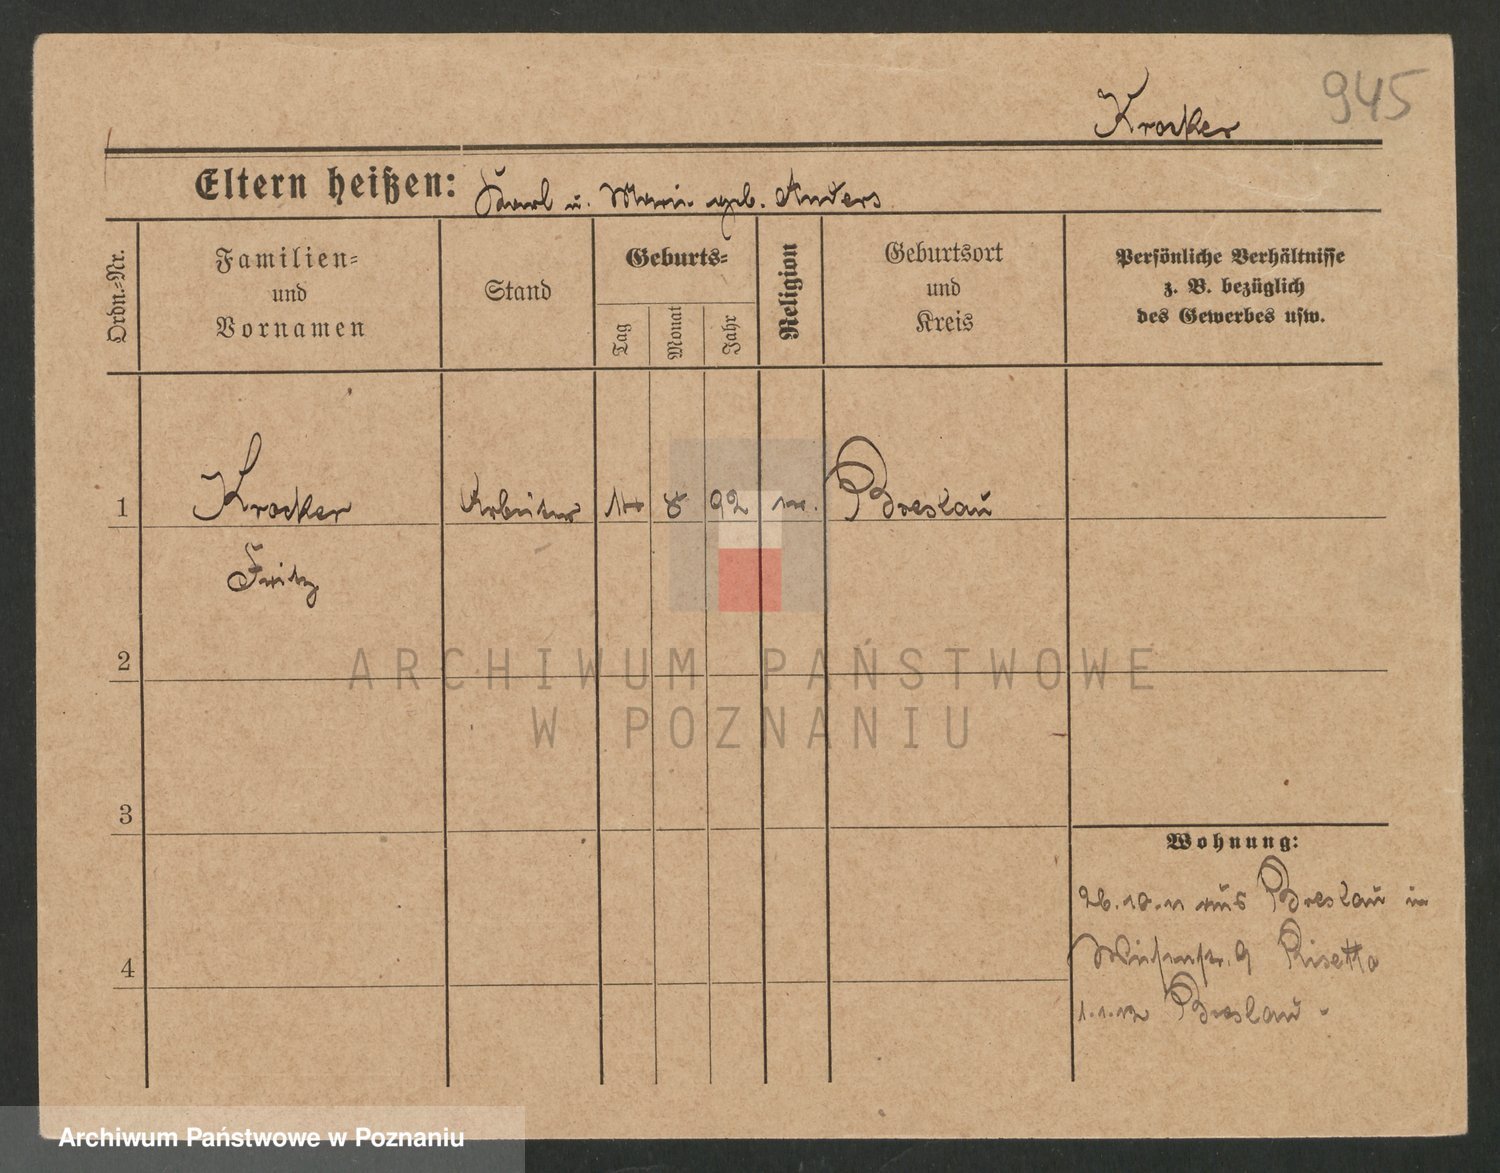 945
Krocker
Eltern heißen: Karl u. Marie geb. Anders
Ordn.-Nr.
Familien-
und
Vornamen
Stand
Geburts-
Tag
Monat
Jahr
Religion
Geburtsort
und
Kreis
Persönliche Verhältnisse
z. B. bezüglich
des Gewerbes usw.
1 Krocker Arbeiter 14 8 92 Breslau
Fritz
2
3
4
Wohnung:
26.10.11 aus Breslau in
Wiesenstr. 9
1.1.12 Breslau
ARCHIWUM PAŃSTWOWE
W POZNANIU
Archiwum Państwowe w Poznaniu